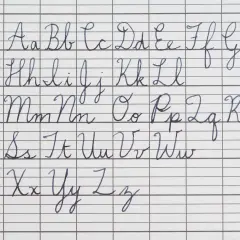 Aa Bb Cc Dd Ee Ff G
Hh Ii Jj Kk Ll
Mm Nn Oo Pp Qq R
Ss Tt Uu Vv Ww
Xx Yy Zz